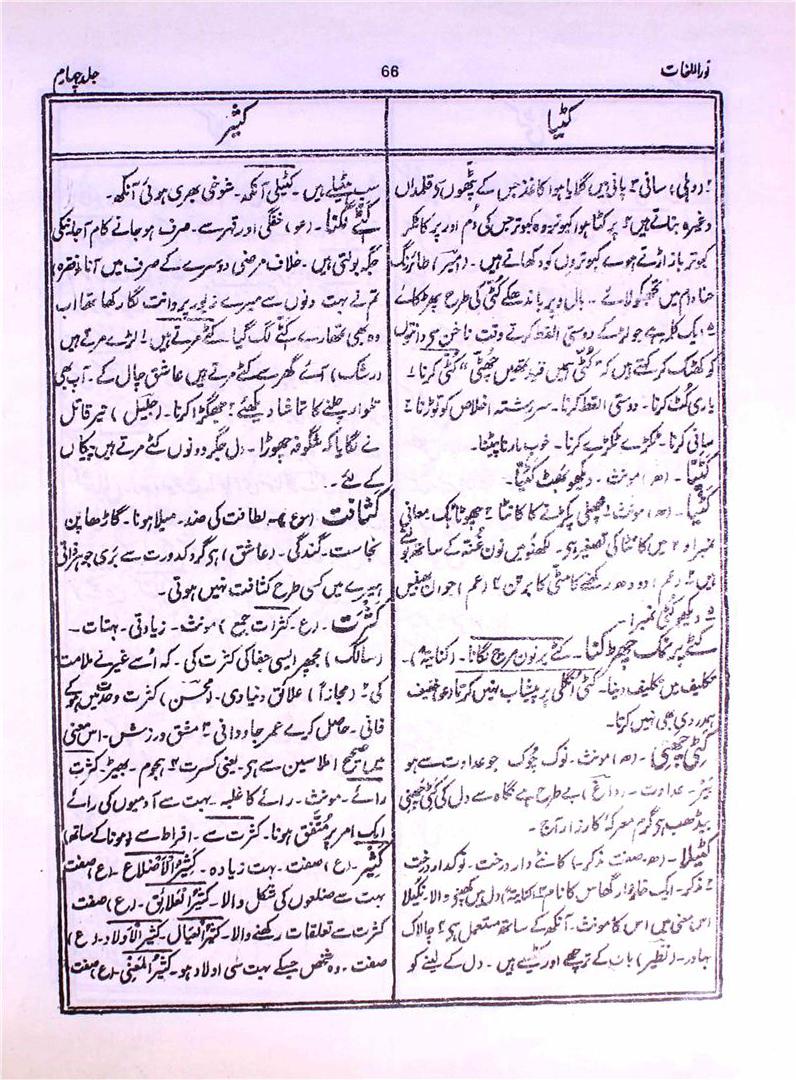 نوراللغات
66
جلد چہارم
کٹیا
کثیر
؂ دوپلی؛ سانی ؂ پانی میں گلایا ہوا کاغذ جس کے پٹھوں و قلمدان
وغیرہ بناتے ہیں ؂ پر کٹا ہوا کبوتر۔ وہ کبوتر جس کی دُم اور پر کاٹ کر
کبوتر باز اڑتے ہوے کبوتروں کو دکھاتے ہیں۔ (منیر) طائر رنگ
حنا دام میں تجھ کو لائے۔۔ بال و پر باندھکے کُٹی کی طرح پھڑکائے
؂ ایک کلمہ ہے جو لڑکے دوستی القط کرتے وقت ناخن سے دانتوں
کو کھٹک کر کہتے ہیں کہ ”کُٹی
یاری کُٹ کرنا۔ دوستی القط کرنا۔ سررشتہ اخلاص کو توڑنا ؂
سانی کرنا۔ ٹکڑے ٹکڑے کرنا۔ خوب مارنا پیٹنا۔
کَٹَیّا۔ (ھ) مونث۔ دیکھو بھٹ کٹیّا۔
کٹیا۔ (ھ) مونث۔ مچھلی پکڑنے کا کانٹا ؂ چھوٹا نمک معانی
نمبر ا و ۲ میں کانٹا کی تصغیر ہی۔ لکھنؤ میں نون غنّہ کے ساتھ بولتے
ہیں ؂ (عم) دودھ رکھنے کا مٹی کا برتن ۴ (عم) جوان بھینس
۵ دیکھو کُٹی نمبر۱۔
کٹے پر نمک چھڑکنا۔ کٹے پر نون مرچ لگانا۔ (کنایۃً)۔
تکلیف میں تکلیف دینا۔ کٹی انگلی پر پیشاب نہیں کرتا (عو) خفیف
ہمدردی بھی نہیں کرتا۔
کٹی چھنی۔ (ھ) مونث۔ نوک چوک جو عداوت سے ہو
بیر۔ عداوت۔ (داغ) بے طرح ہے نگاہ سے دل کی کٹی چھنی
بیڈھب ہی گرم معرکہ کارزار آج۔
کٹیلا۔ (ھ۔ صفت مذکر۔) کانٹے دار درخت۔ نوکدار درخت
؂ مذکر۔ ایک خاردار گھاس کا نام ؂ (کنایۃً) دل میں کھپنے والا۔ نکیلا
اس معنی میں اس کا مونث۔ آنکھ کے ساتھ مستعمل ہی ؂ چالاک
بہادر۔ (نظیر) بان کے ترچھے اور کٹیلے ہیں۔ دل کے لینے کو
سب ہٹیلے ہیں۔ کٹیلی آنکھ۔ شوخی بھری ہوئی آنکھ۔
کٹے لگنا۔ (عو) خفگی اور قہر سے۔ صرف ہو جانے کام آجانیکی
جگہ بولتی ہیں۔ خلاف مرضی دوسرے کے صرف میں آنا (فقرہ)
تم نے بہت دنوں سے میرے زیور پر دانت لگا رکھا تھا اب
وہ بھی تمھارے کٹے لگ گیا۔ کٹے مرتے ہیں ؂ لڑے مرتے ہیں
(رشک) آئے گھر سے کٹے مرتے ہیں عاشق چال کے۔ آپ بھی
تلوار چلنے کا تماشا دیکھئے ؂ جھگڑا کرنا۔ (جلیل) تیر قاتل
نے لگایا کہ شگوفہ چھوڑا۔ دل جگر دونوں کٹے مرتے ہیں پیکاں
کے لئے۔
کثافت (ع)۔ لطافت کی ضد۔ میلا ہونا۔ گاڑھا پن
نجاست۔ گندگی۔ (عاشق) ہی گرد کدورت سے بری جوہر ذاتی
ہیرے میں کسی طرح کثافت نہیں ہوتی۔
کثرت۔ (ع۔ کثرات جمع) مونث۔ زیادتی۔ بہتات۔
(سالک) مجھپر ایسی جفا کی کثرت کی۔ کہ اُسے غیر نے ملامت
کی ؂ (مجازاً) علائق دنیادی۔ (محسن) کثرت وحدت میں ہوکے
فانی۔ حاصل کرے عمر جاودانی ؂ مشق ورزش۔ اس معنی
میں صحیح املا سین سے ہی۔ یعنی کسرت ۴ ہجوم۔ بھیڑ۔ کثرت
رائے۔ مونث۔ رائے کا غلبہ۔ بہت سے آدمیوں کی رائے
ایک امر پر متفق ہونا۔ کثرت سے۔ افراط سے (ہونا کے ساتھ)
کثیر۔ (ع) صفت۔ بہت زیادہ۔ کثیرالاضلاع (ع) صفت
بہت سے ضلعوں کی شکل والا۔ کثیرالعلائق۔ (ع) صفت
کثرت سے تعلقات رکھنے والا۔ کثیرالعیال۔ کثیرالاولاد۔ (ع)
صفت۔ وہ شخص جسکے بہت سی اولاد ہو۔ کثیرالمعنی۔ (ع) صفت